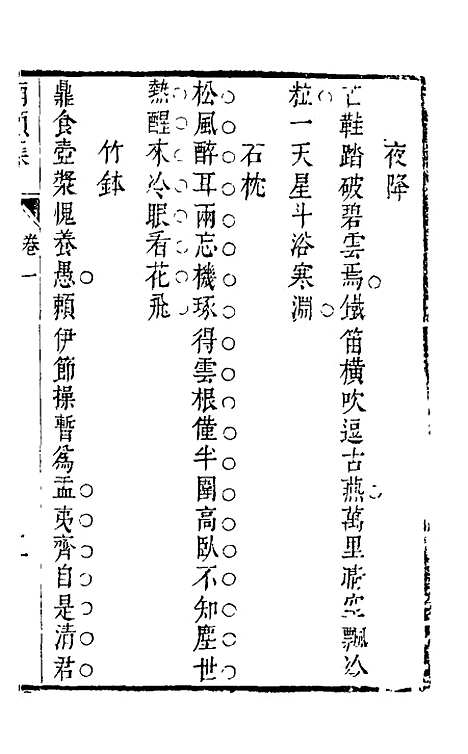 夜降
芒鞋踏破碧雲焉鐵笛橫吹逗古燕萬里淸空飄冷
粒一天星斗浴寒淵
石枕
松風醉耳兩忘機琢得雲根僅半圍高臥不知塵世
熱醒來冷眼看花飛
竹鉢
鼎食壺漿愧養愚賴伊節操暫爲盂夷齊自是清君
卷一